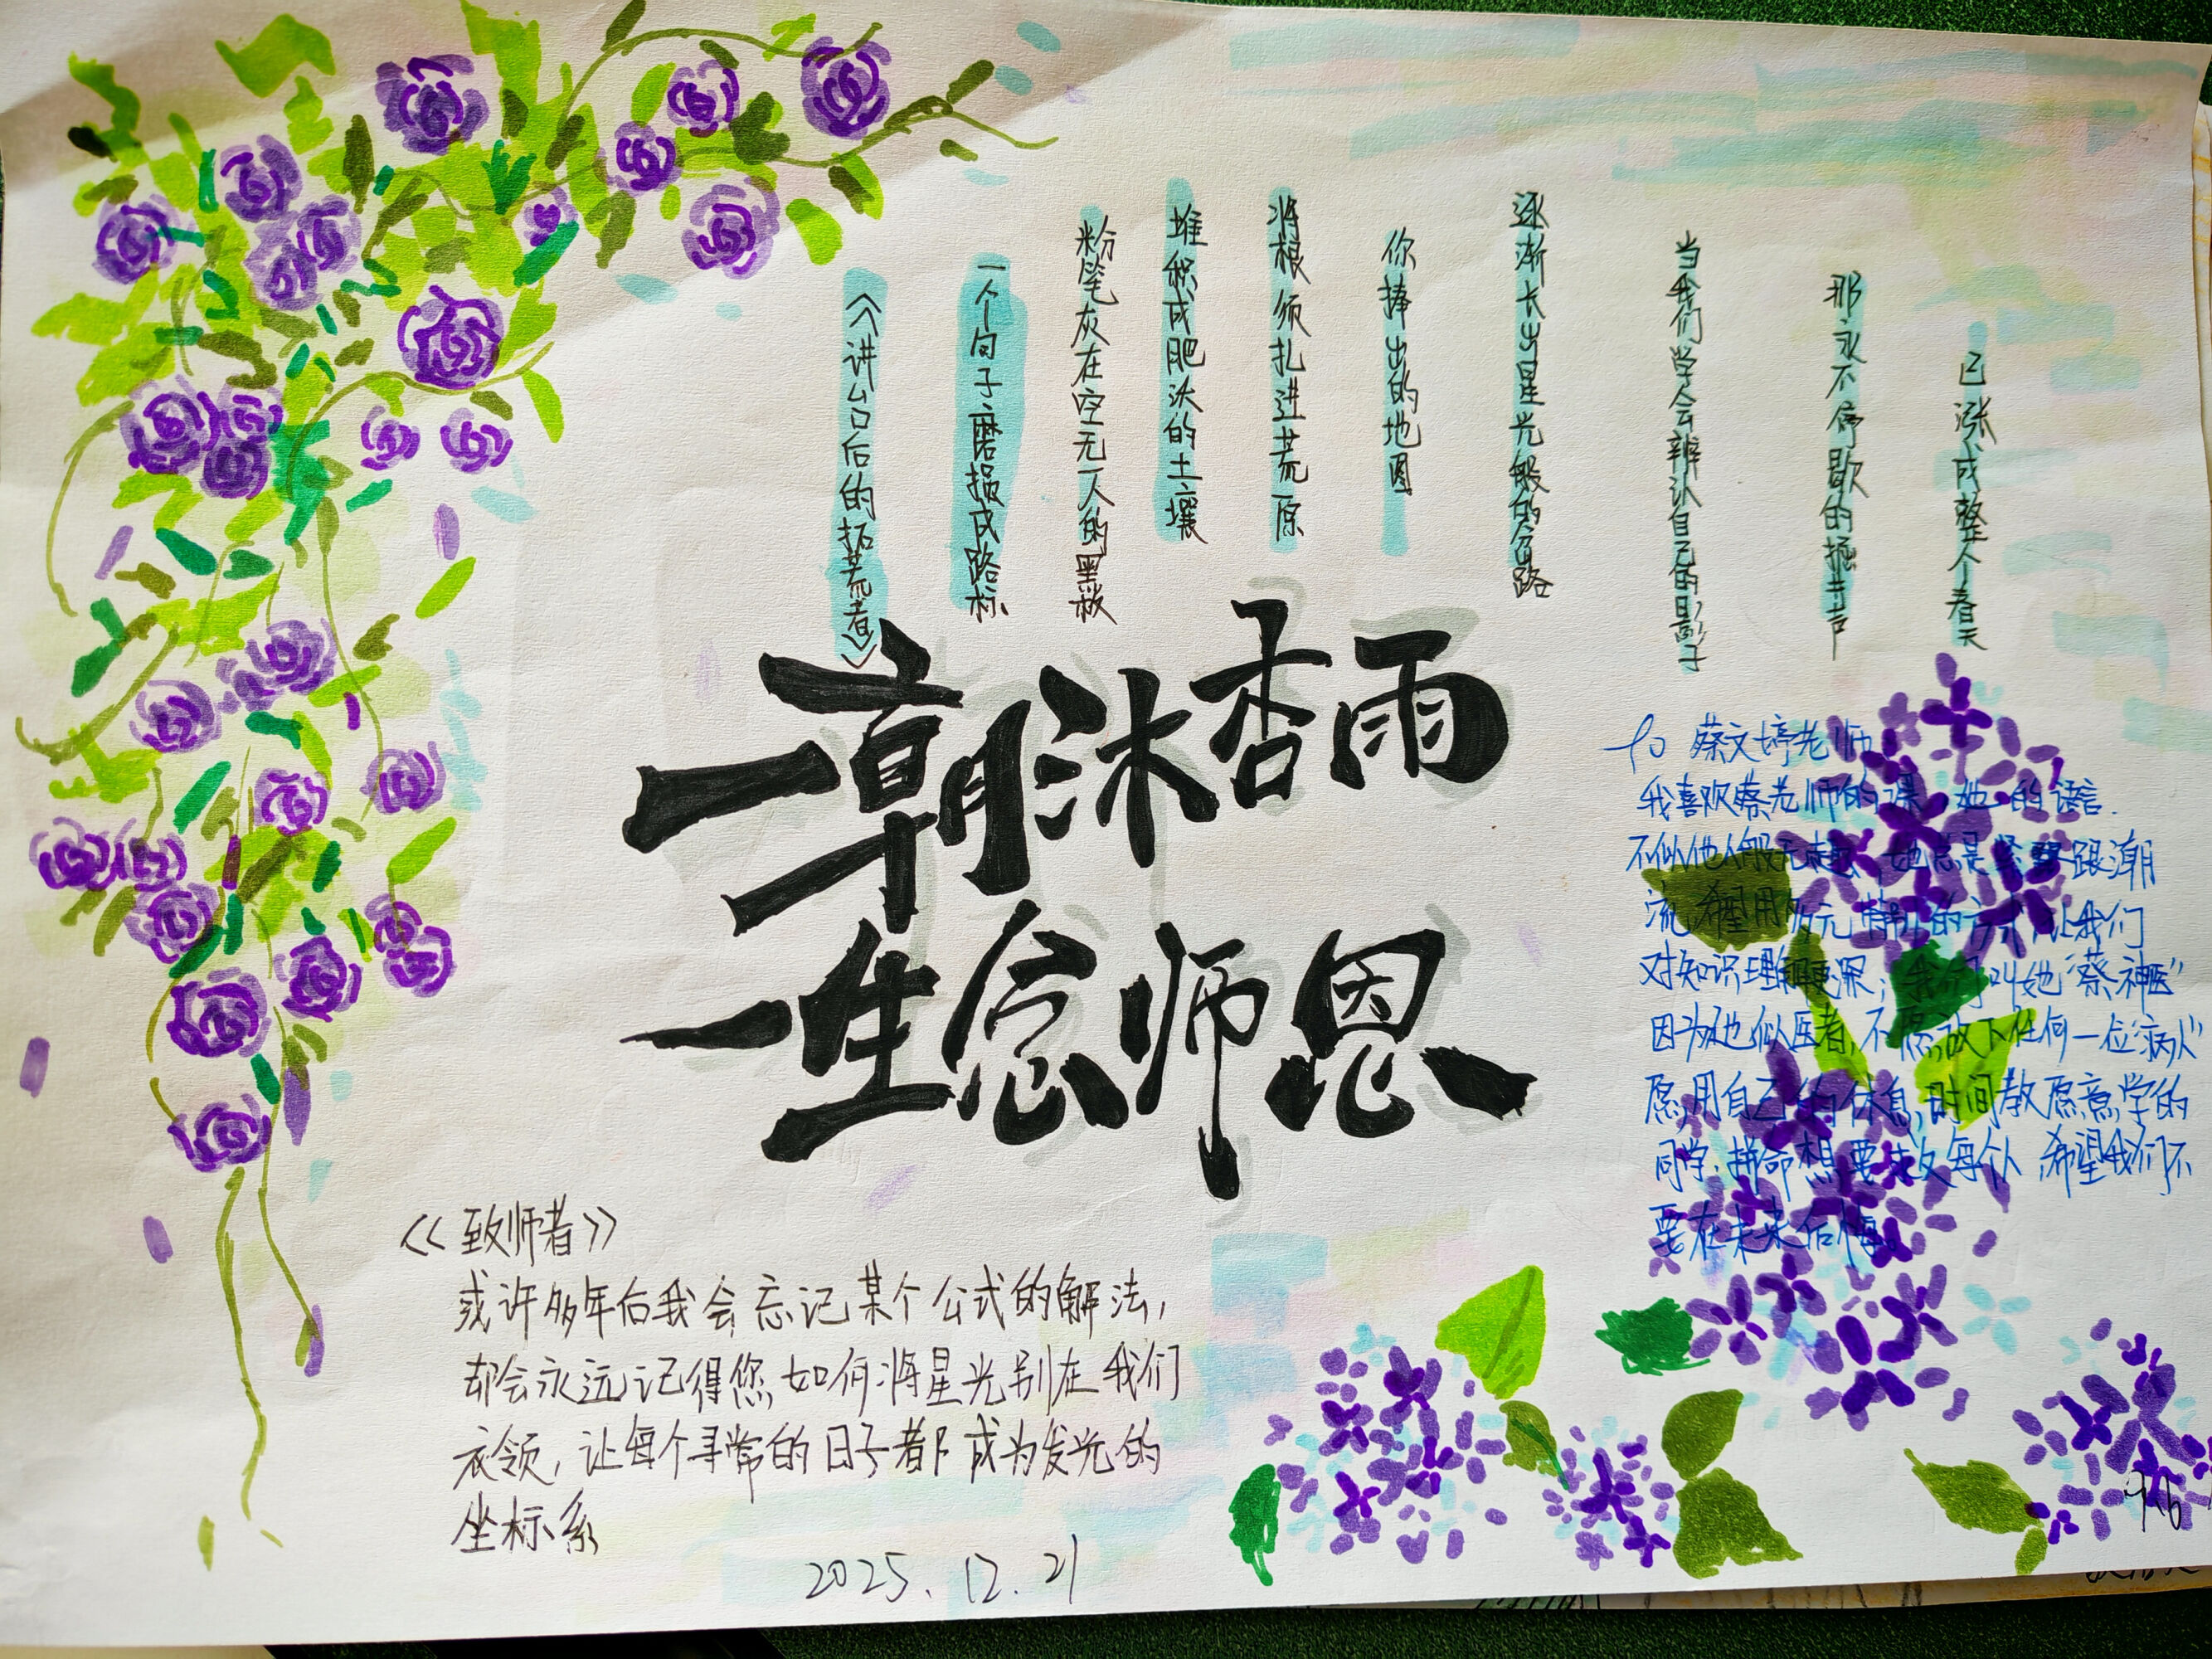 《讲台后的拓荒者》
一个句子磨损成路标
粉笔灰在空无一人的黑板
堆积成肥沃的土壤
将根须扎进荒原
你捧出的地图
逐渐长出星光般的岔路
当我们学会辨认自己的影子
那永不停歇的掘井声
已涨成整个春天
一朝沐杏雨
一生念师恩
to 蔡文婷老师
我喜欢蔡老师的课,她的语言.
不似他人般无趣,她总是紧跟潮
流,希望用多元的方式,让我们
对知识理解更深;我们叫她"蔡神医"
因为他似医者,不愿放下任何一位"病人"
愿用自己的休息时间教愿意学的
同学,拼命想要救每个人,希望我们不
要在未来后悔。
《致师者》
或许多年后我会忘记某个公式的解法,
却会永远记得您如何将星光别在我们
衣领,让每个寻常的日子都成为发光的
坐标系
2025.12.21